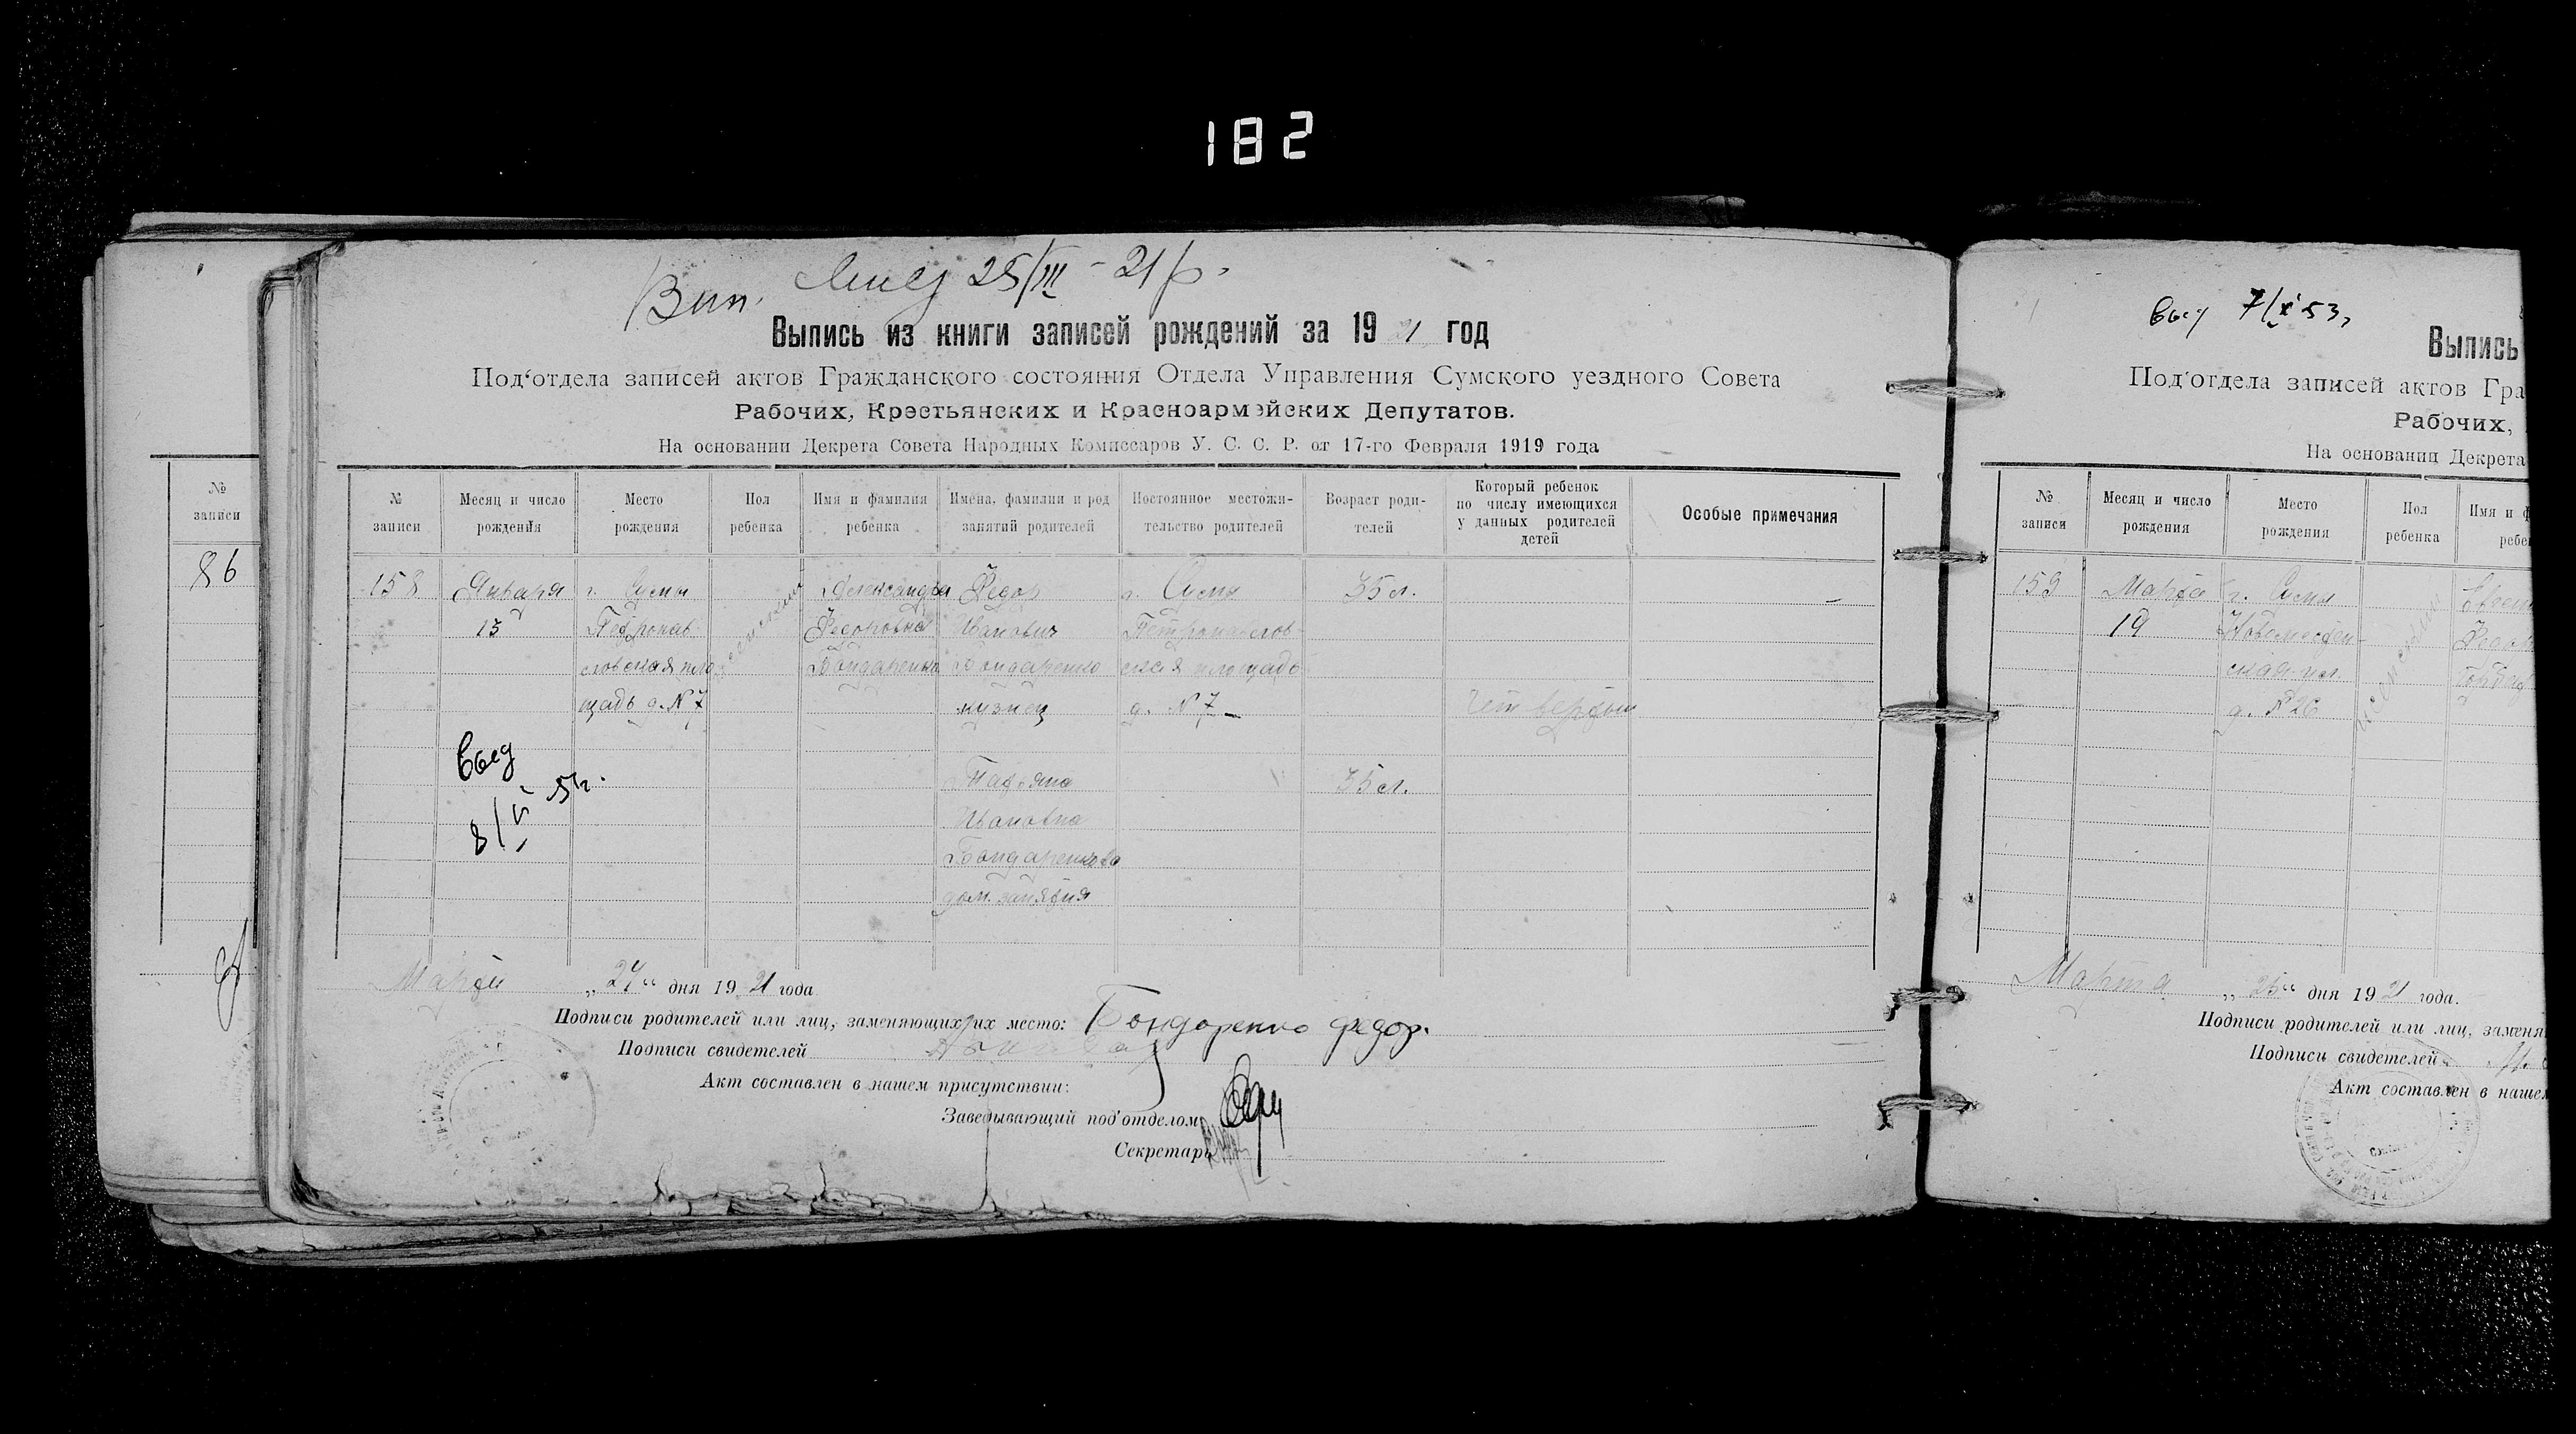 182
Вип. 25/III - 21 р.
Выпись из книги записей рождений за 1921 год
Под'отдела записей актов Гражданского состояния Отдела Управления Сумского уездного Совета
Рабочих, Крестьянских и Красноармейских Депутатов.
На основании Декрета Совета Народных Комиссаров У. С. С. Р. от 17-го Февраля 1919 года
№ записи
Месяц и число рождения
Место рождения
Пол ребенка
Имя и фамилия ребенка
Имена, фамилия и род занятий родителей
Постоянное местожительство родителей
Возраст родителей
Который ребенок по числу имеющихся у данных родителей детей
Особые примечания
158
Января
13
г. Сумы
Петропав
ловская пло
щадь д. № 7
женский
Александра
Федоровна
Бондаренко
Федор
Иванович
Бондаренко
кузнец
г. Сумы
Петропавлов
ская площадь
д. № 7
35 л.
Четвертый
Татьяна
Ивановна
Бондаренкова
дом. занятия
35 л.
выд
8/VI 51г.
Марта „24“ дня 1921 года
Подписи родителей или лиц, заменяющих их место: Бондаренко Федор.
Подписи свидетелей
Акт составлен в нашем присутствии:
Заведывающий под'отделом
Секретарь
№ записи
86
выд 7/X 53,
Выпись
Под'отдела записей актов Гра
Рабочих,
На основании Декрета
№ записи
Месяц и число рождения
Место рождения
Пол ребенка
Имя и ф
ребе
159
Марта
19
г. Сумы
Новоместен-
ская ул.
д. № 26
женский
Евген
Федор
Бондар
Марта „25“ дня 1921 года.
Подписи родителей или лиц, заменя
Подписи свидетелей
Акт составлен в наше